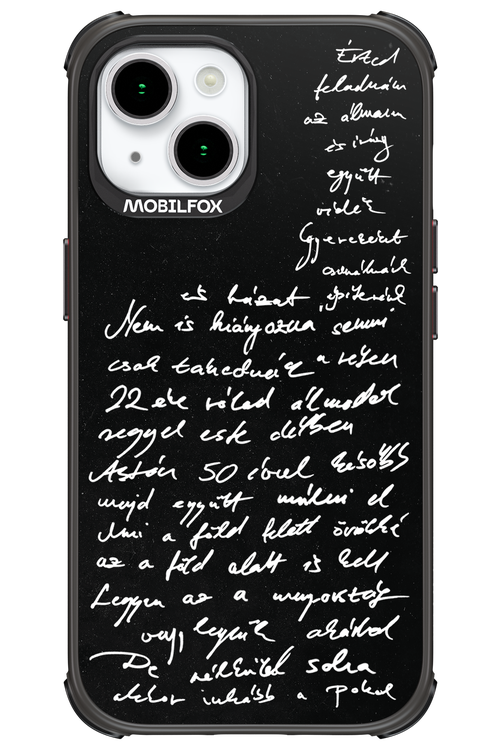 MOBILFOX
Érted
feladnám
az álmaim
és így
együtt
vidék
Gyerekeket
csinálnánk
és házat építenénk
Nem is hiányozna semmi
csak takednék a
22 éve rólad álmodok
reggel este délben
Aztán 50 évvel később
majd együtt múlni el
Ami a föld felett örökké
az a föld alatt is kell
Legyen az a mennyország
vagy legyünk akárhol
De nélküled soha
akkor inkább a Pokol